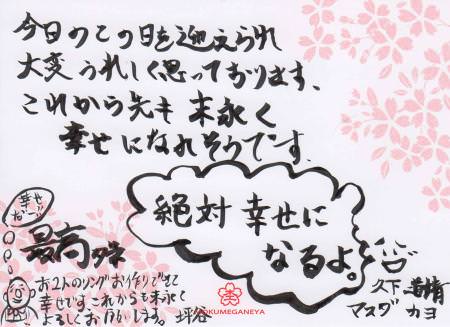 今日のこの日を迎えられ
大変うれしく思っております。
これから先も末永く
幸せになれそうです。
絶対幸せに
なるよ。
幸せ
だー
最高っス
お2人のリングお作りできて
幸せです これからも末永く
よろしくお願いします。坪谷
久下
マスダ カヨ
KUMEGANEYA